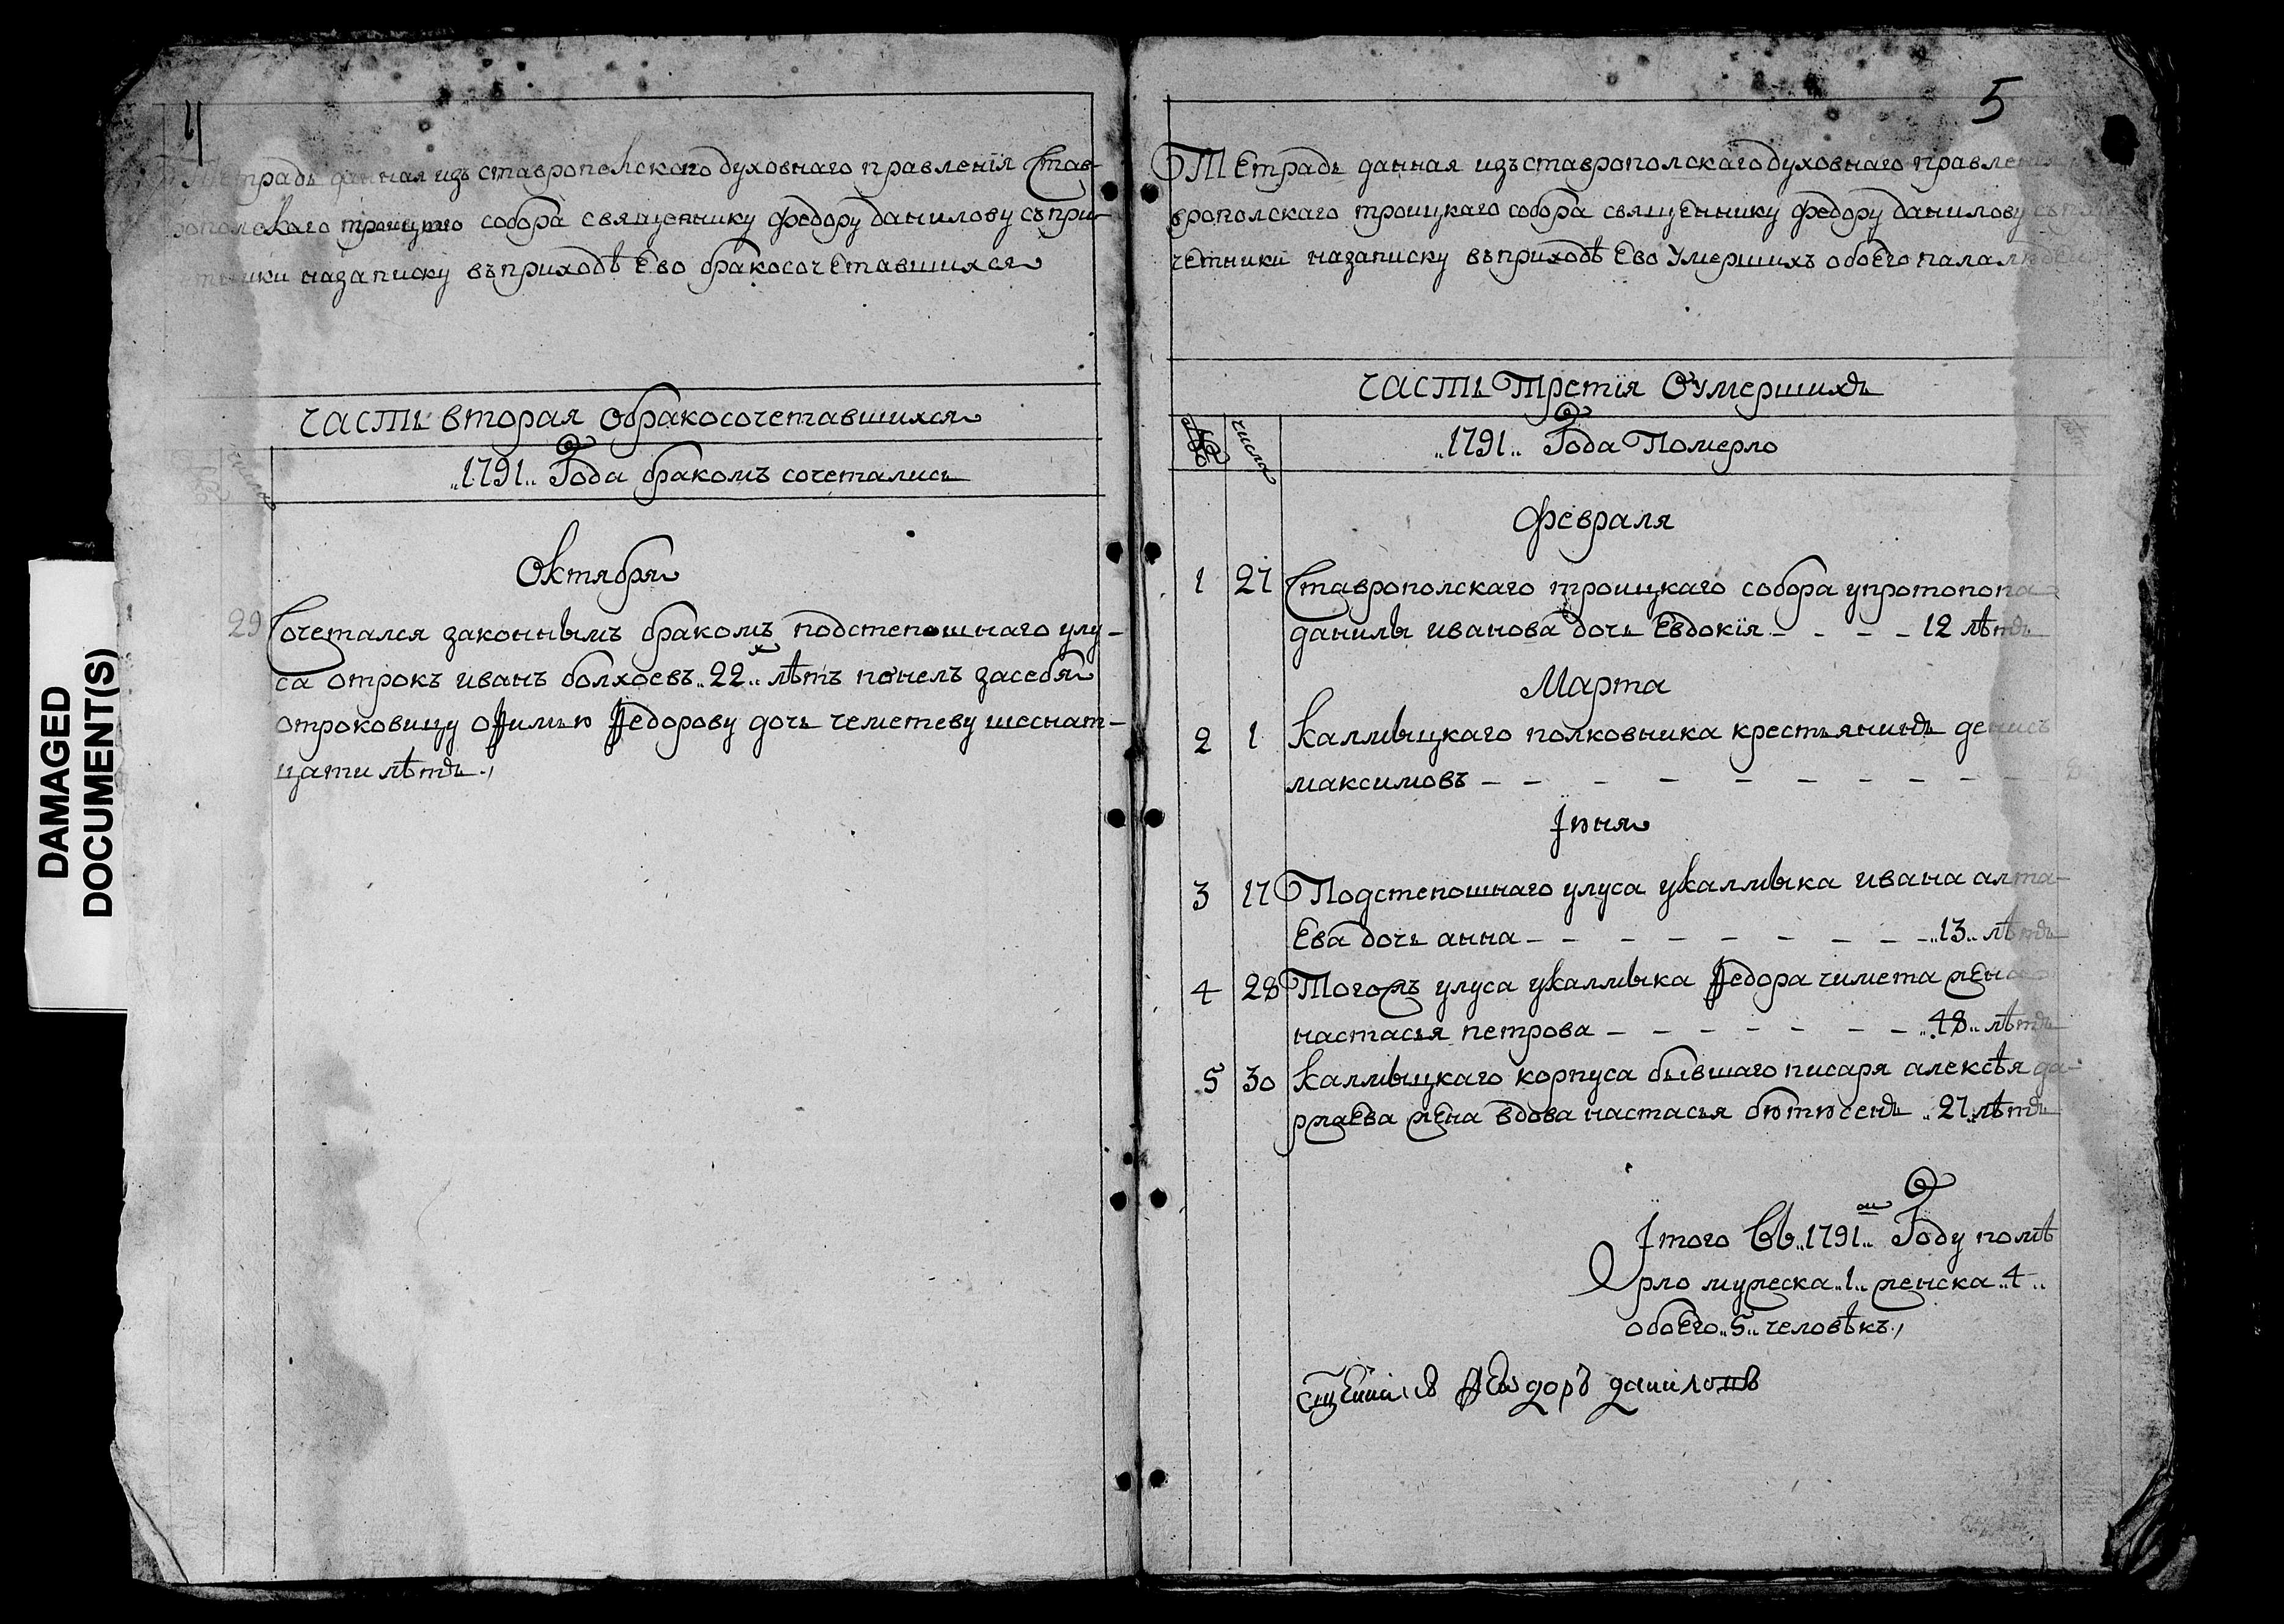 DAMAGED
DOCUMENT(S)
4
Тетрадь данная изъ ставропольского духовнаго правленїя Став-
ропольскаго троицкаго собора священнику федору данилову съ при-
четники назаписку въприходѣ Ево бракосочЕтавшихся
числа
ЧАСТЬ вторая Обракосочетавшихся
„1791„ Года бракомъ сочетались
Октября
29 Сочетался законнымъ бракомъ подстепошнаго улу-
са отрокъ иванъ болхоевъ „22„ х лѣтъ понелъ засебя
отроковицу оѲимью Ѳедорову дочь чеметеву шеснат-
цати лѣтъ.,
5
ТЕтрадь данная изъставрополскагодуховнаго правленїя
врополскаго троицкаго собора священнику федору данилову съ при
четники назаписку въприходѣ Ево Умершихъ обоЕго пала людей
ЧАСТЬ Третїя ОУмершихъ
№ числа „1791„ Года Померло
Февраля
1 27 Ставрополскаго троицкаго собора упротопопа
данилы иванова дочь Евдокїя - - - - 12 лѣтъ
Марта
2 1 калмыцкаго полковника крестьянинъ денисъ
максимовъ - - - - - - - - - -
Їюня
3 17 Подстепошнаго улуса укалмыка ивана алта-
Ева дочь анна - - - - - - - - - „13„ лѣтъ
4 28 Тогожъ улуса укалмыка Ѳедора чимета жена
настасья петрова - - - - - - - „48„ лѣтъ
5 30 калмыцкаго корпуса бывшаго писаря алексѣя да-
ржаЕва жЕна вдова настасья бютюсенъ „27„ лѣтъ
Їтого Въ „1791„ ом Году помѣ
рло мужеска „1„ женска „4„
обоЕго „5„ человѣкъ.,
сщенникъ Ѳеѡдоръ даниловъ